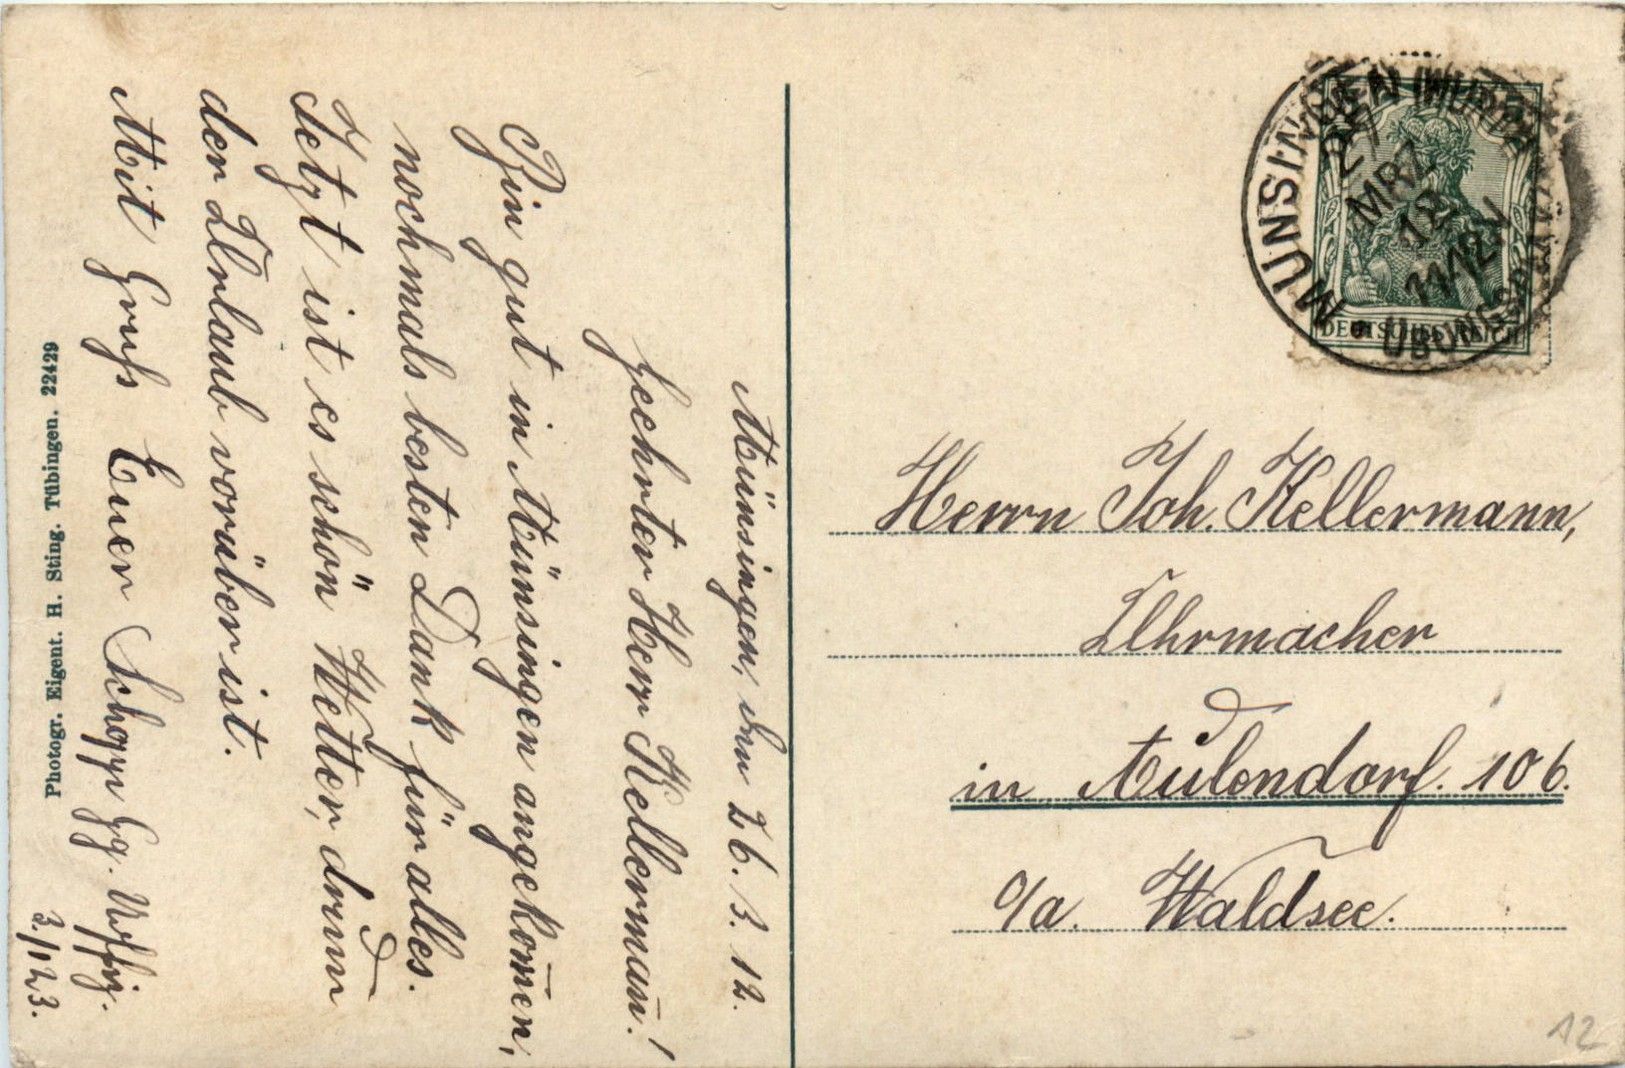 Münsingen, den 26. 3. 12.
Geehrter Herr Kellermañ!
Bin gut in Münsingen angekom̄en,
nochmals besten Dank für alles.
Jetzt ist es schön Wetter, drum
der Urlaub vorüber ist.
Mit Gruß Euer Schopp
3./123.
Photogr. Eigent. H. Sting. Tübingen. 22429
MÜNSINGEN (WÜRTT
27
MRZ
12
11-12 V
DEUTSCHES REICH
Herrn Joh. Kellermann,
Uhrmacher
in Aulendorf. 106.
o/a. Waldsee.
12